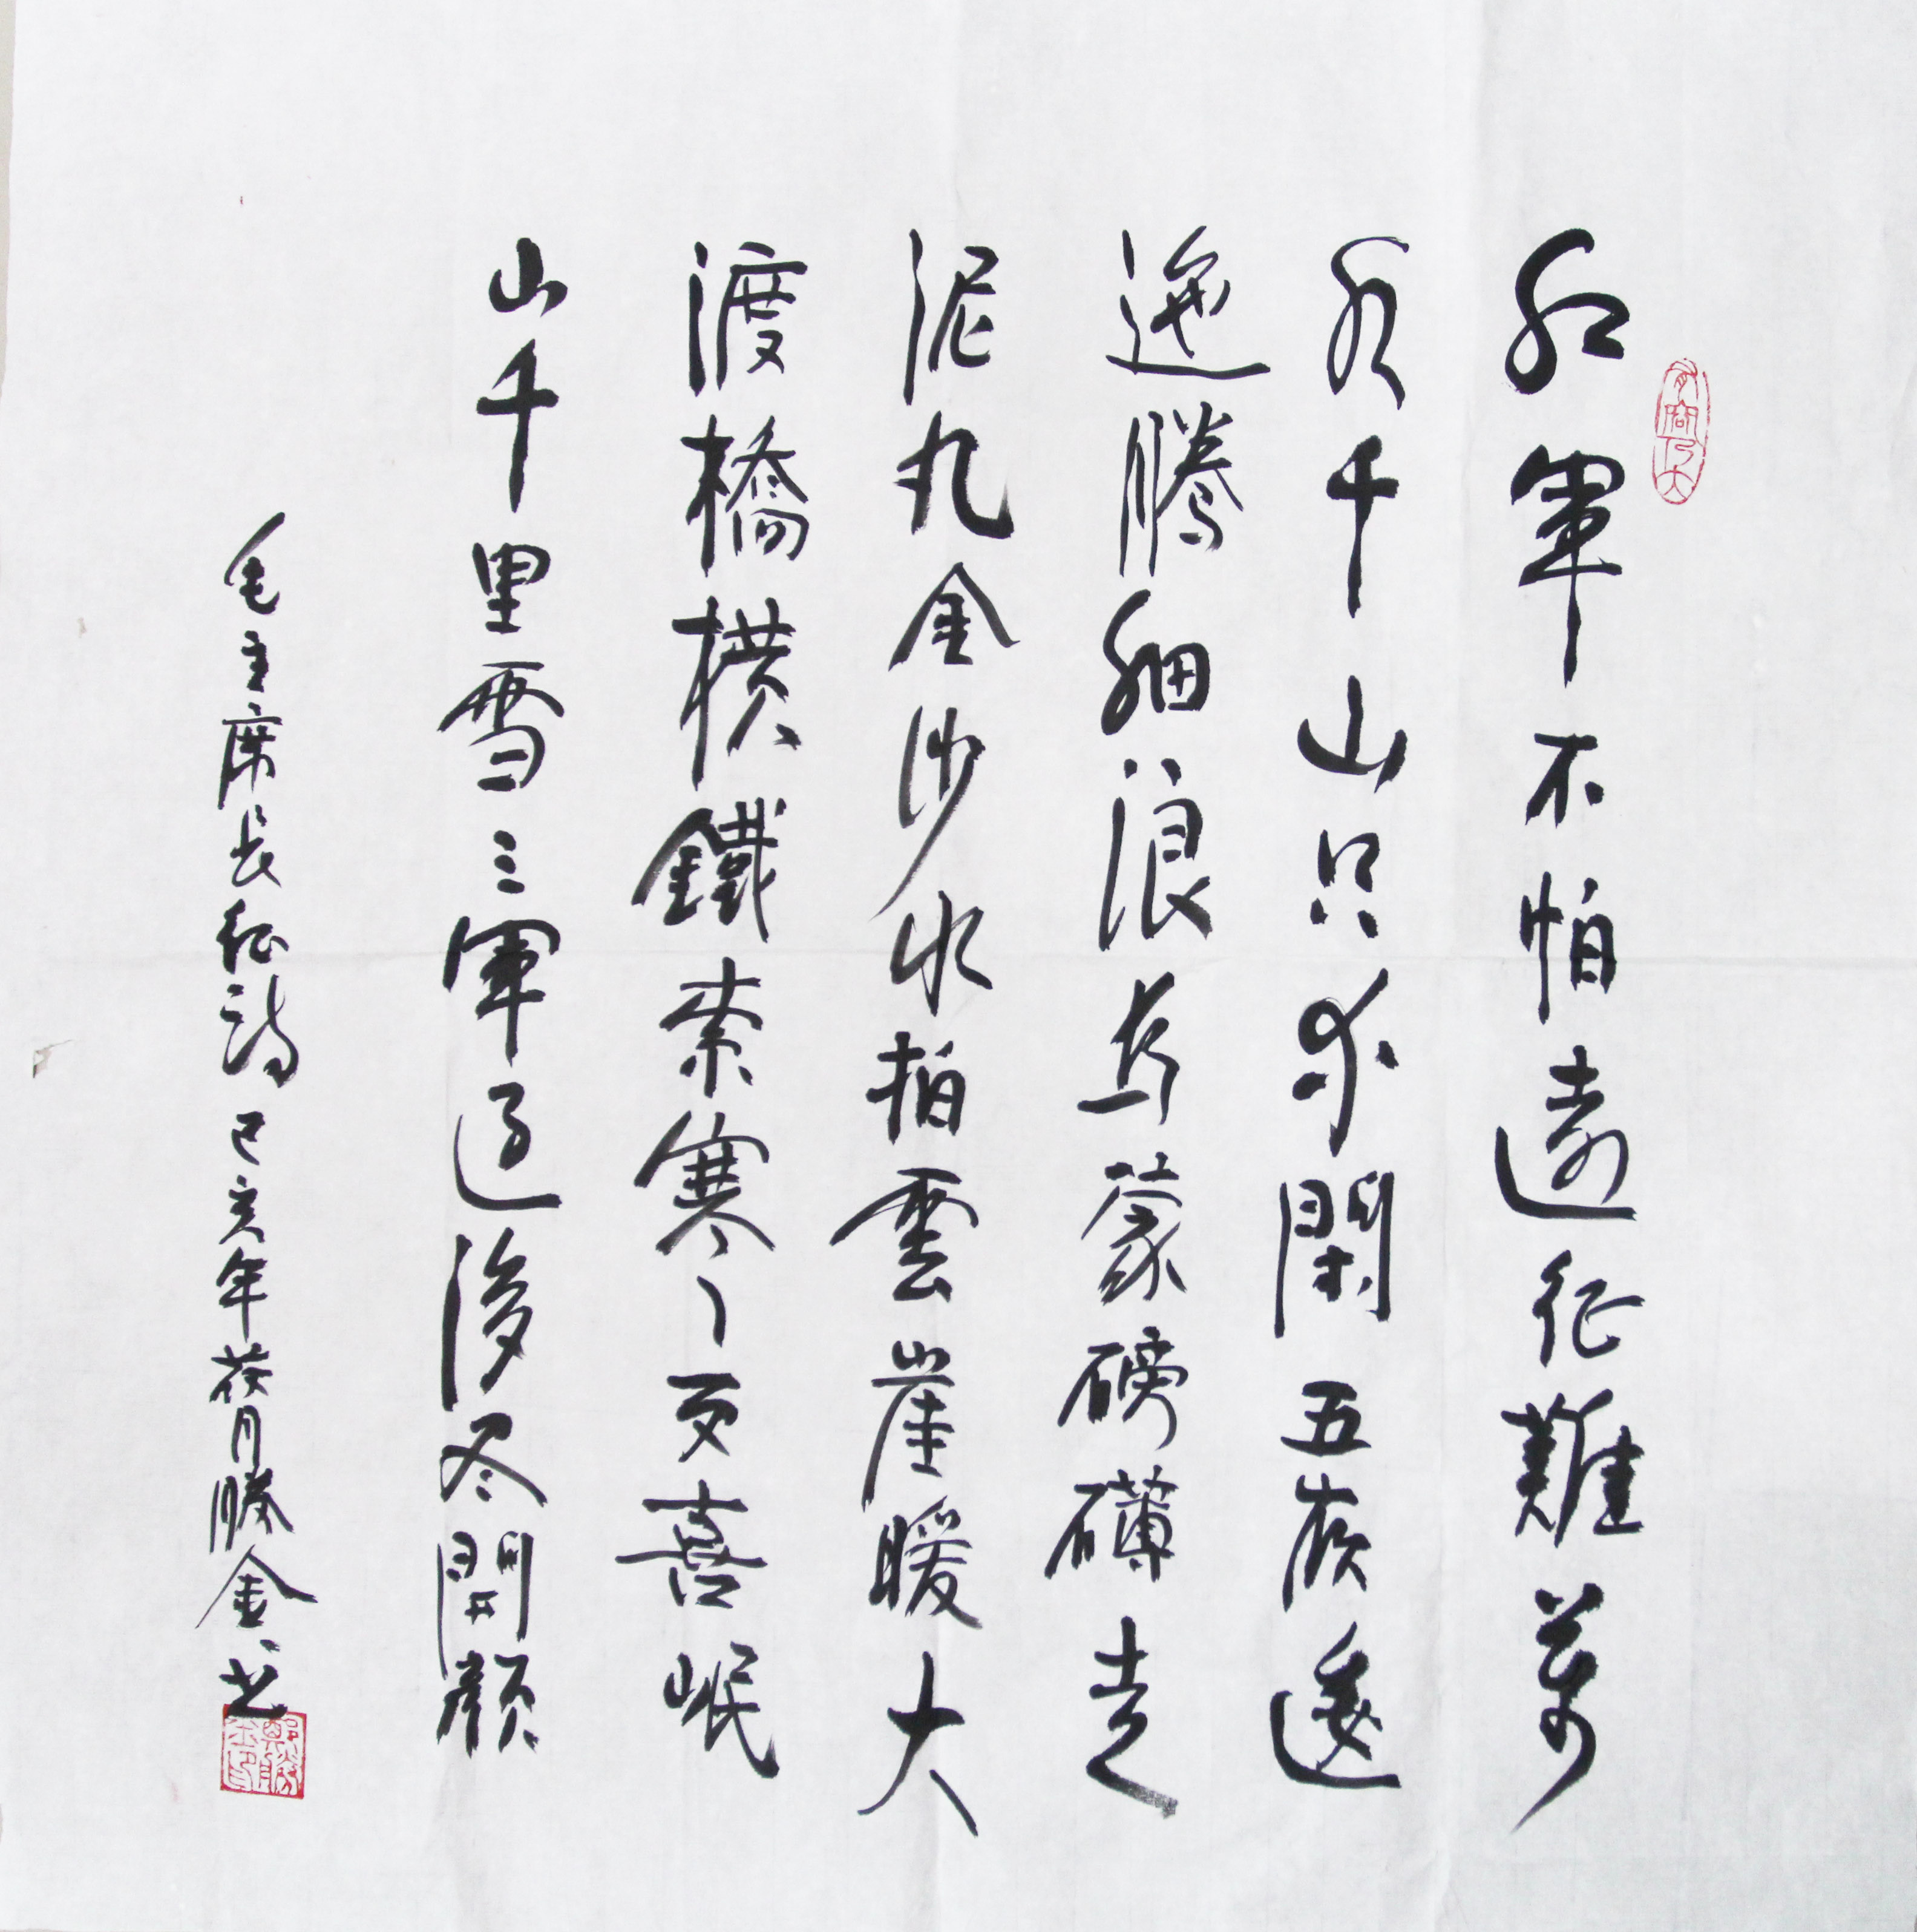 有容乃大
紅軍不怕遠征難萬
水千山只等閑五嶺逶
迤騰細浪烏蒙磅礴走
泥丸金沙水拍雲崖暖大
渡橋横鐵索寒更喜岷
山千里雪三軍過後尽開顏
毛主席长征詩 己亥年荷月勝金书
鄭勝金印